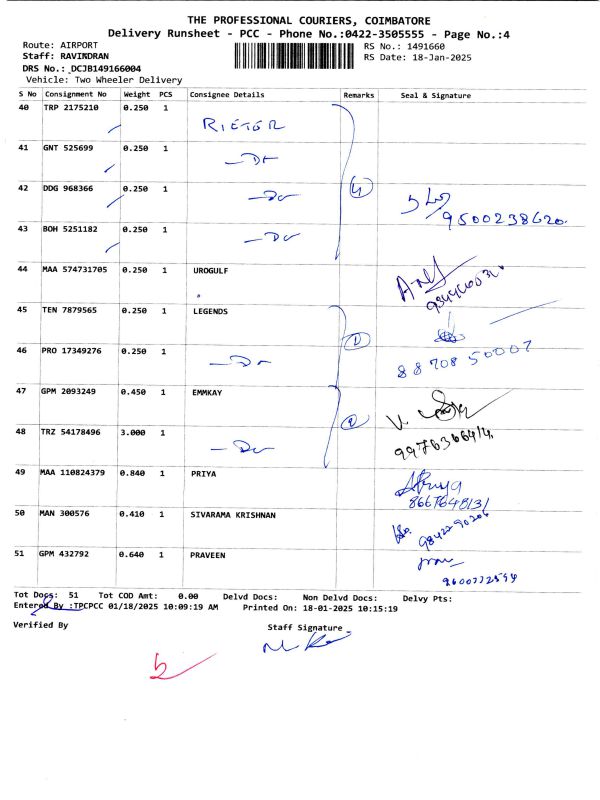 THE PROFESSIONAL COURIERS, COIMBATORE
Delivery Runsheet - PCC - Phone No.:0422-3505555 - Page No.:4
Route: AIRPORT RS No.: 1491660
Staff: RAVINDRAN RS Date: 18-Jan-2025
DRS No.: DCJB149166004
Vehicle: Two Wheeler Delivery
S No Consignment No Weight PCS Consignee Details Remarks Seal & Signature
40 TRP 2175210 0.250 1 RIETER
41 GNT 525699 0.250 1
42 DDG 968366 0.250 1 9500238620
43 BOH 5251182 0.250 1
44 MAA 574731705 0.250 1 UROGULF
45 TEN 7879565 0.250 1 LEGENDS
46 PRO 17349276 0.250 1 88708 50007
47 GPM 2093249 0.450 1 EMMKAY
48 TRZ 54178496 3.000 1
49 MAA 110824379 0.840 1 PRIYA 8667648131
50 MAN 300576 0.410 1 SIVARAMA KRISHNAN
51 GPM 432792 0.640 1 PRAVEEN
Tot Docs: 51 Tot COD Amt: 0.00 Delvd Docs: Non Delvd Docs: Delvy Pts:
Entered By :TPCPCC 01/18/2025 10:09:19 AM Printed On: 18-01-2025 10:15:19
Verified By Staff Signature